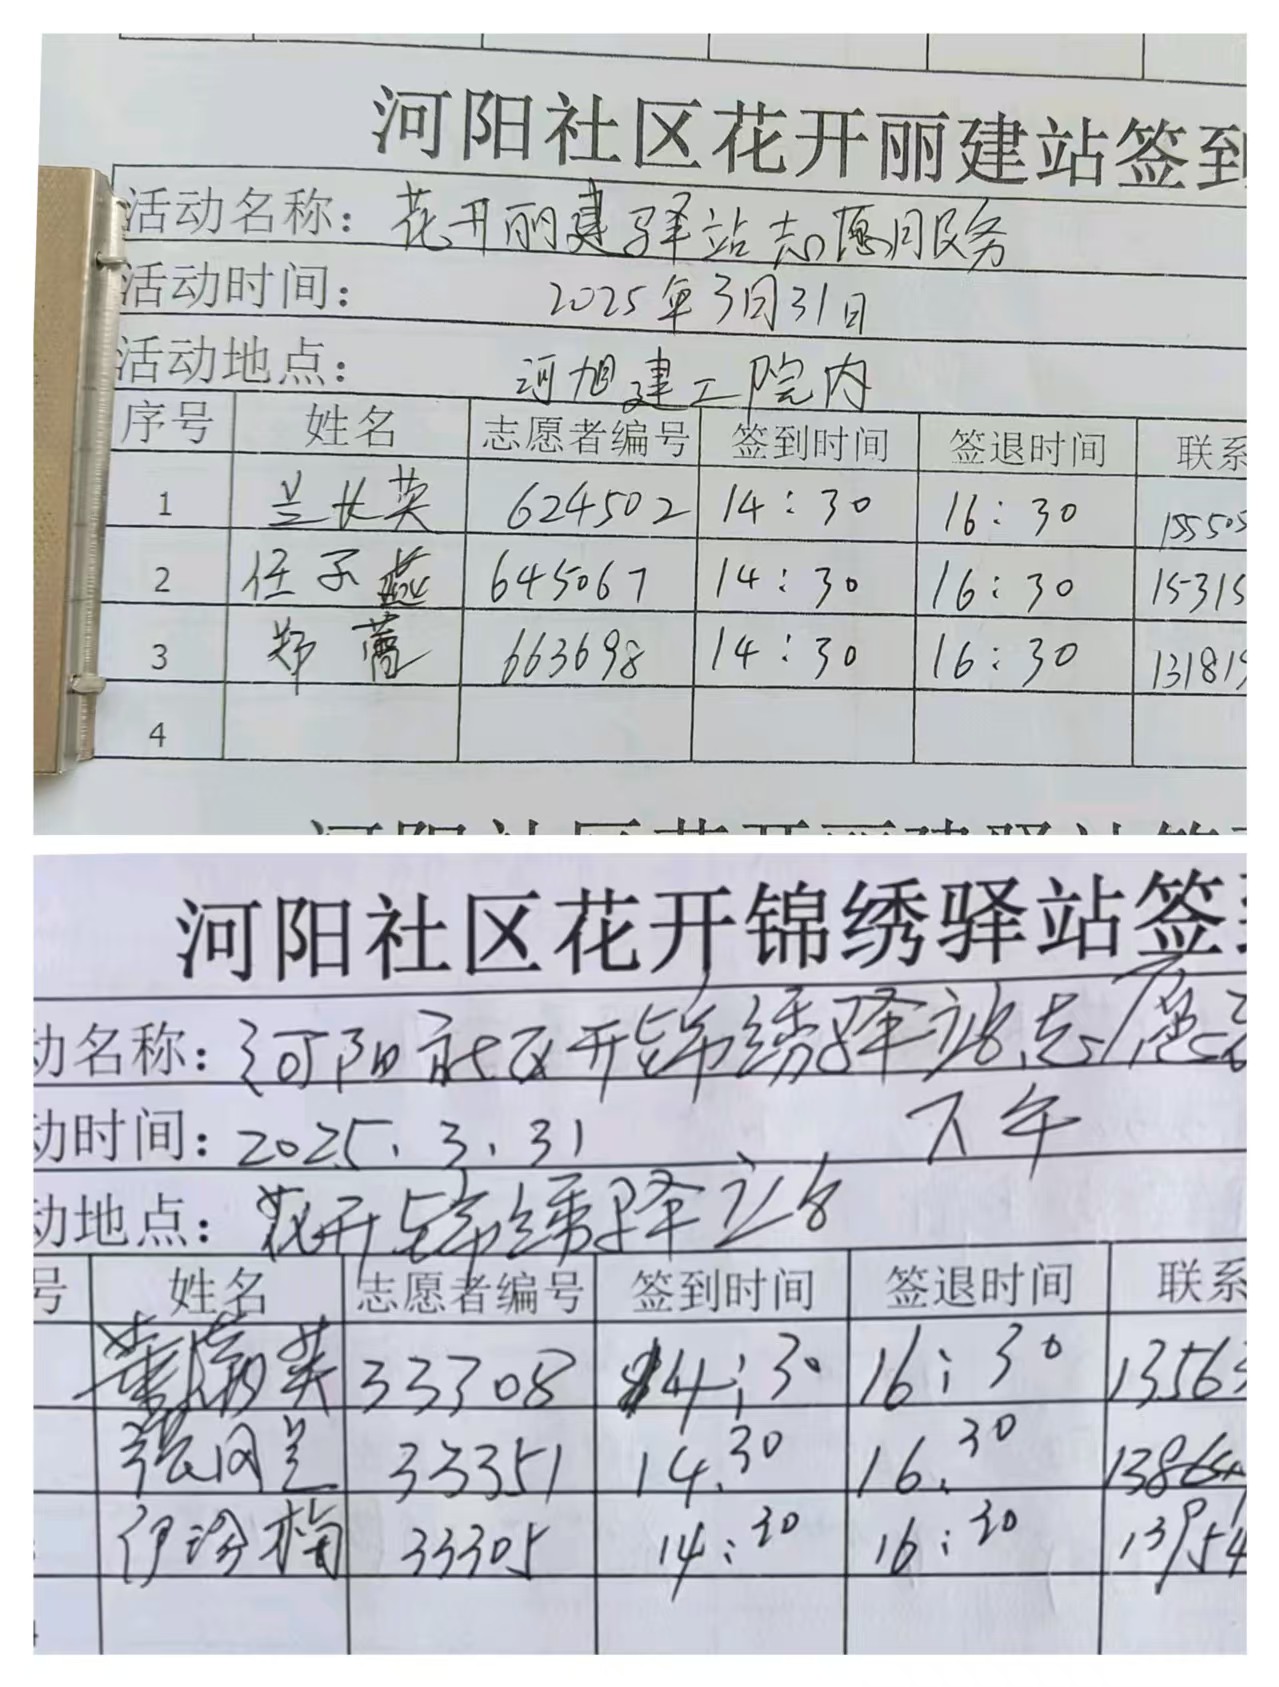 河阳社区花开丽建站签到
活动名称：花开丽建驿站志愿服务
活动时间：2025年3月31日
活动地点：河旭建工院内
序号 姓名 志愿者编号 签到时间 签退时间 联系
1 兰长英 624502 14：30 16：30 15550
2 任子燕 645067 14：30 16：30 15315
3 郑 663698 14：30 16：30 13181
4
河阳社区花开锦绣驿站签
动名称：河阳社区开锦绣驿站志愿
动时间：2025.3.31 下午
动地点：花开锦绣驿站
号 姓名 志愿者编号 签到时间 签退时间 联系
英 33308 14：30 16：30 13563
张风兰 33351 14.30 16.30 1386
伊梅 33305 14：30 16：30 13954